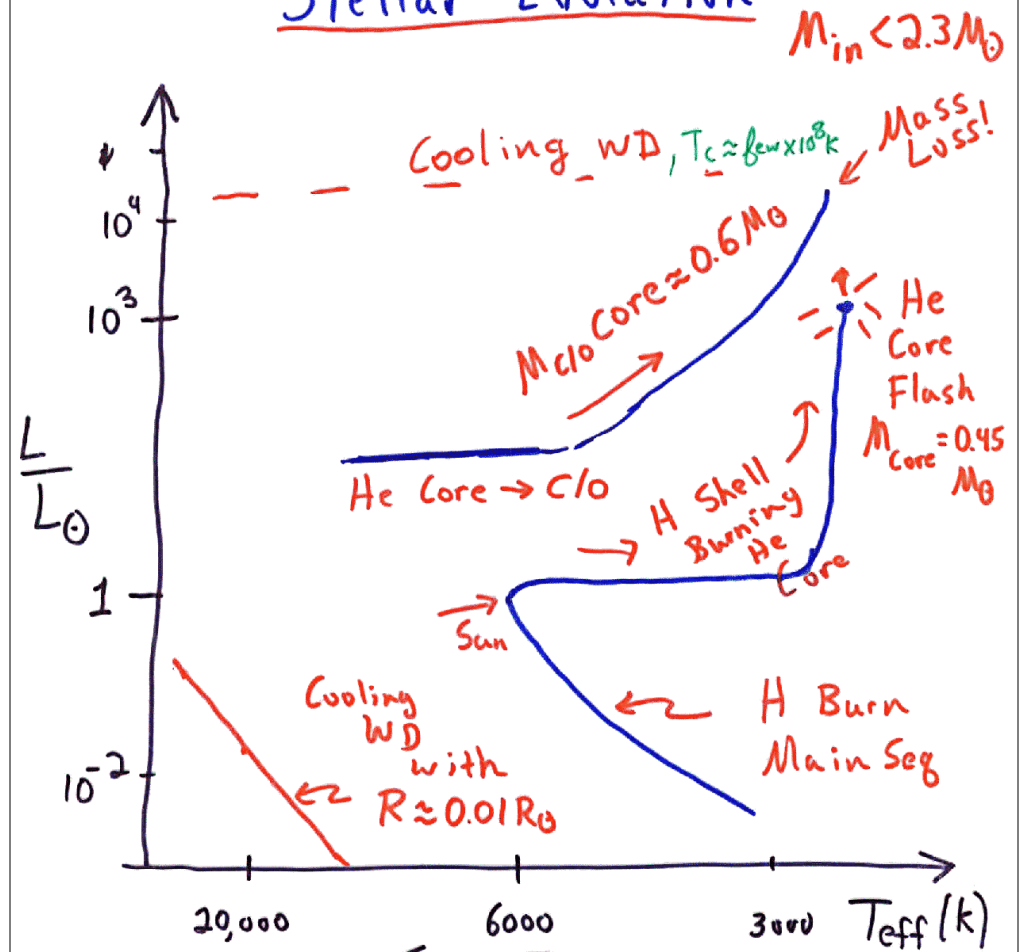 Stellar Evolution
M_in < 2.3 M⊙
Mass
Loss!
Cooling WD, T_c ≈ few × 10⁸ K
10⁴
10³
M_C/O Core ≈ 0.6 M⊙
He
Core
Flash
M_Core = 0.45
M⊙
L/L⊙
He Core → C/O
H Shell
Burning
He
Core
1
Sun
Cooling
WD
with
R ≈ 0.01 R⊙
H Burn
Main Seq
10⁻²
20,000
6000
3000
Teff (K)